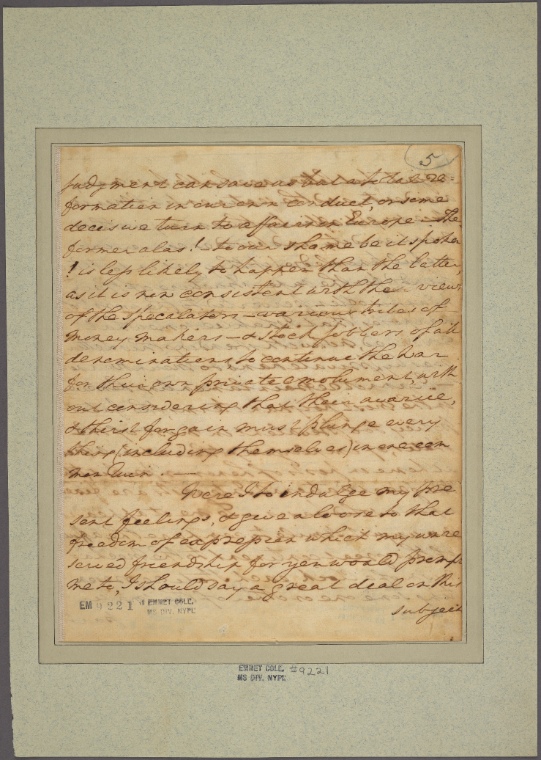 5
judgment can save us but a total re-
formation in our own conduct or some
decisive turn to affairs in Europe — The
former alas! — to our shame be it spoken
! is less likely to happen than the latter,
as it is now consistent with the views
of the speculators — various tribes of
money makers — & stock jobbers of all
denominations to continue the War
for their own private emolument, with
out considering that their avarice,
& thirst for gain must plunge every
thing (including themselves) in one com
mon Ruin. —
Were I to indulge my pre
sent feelings, & give a loose to that
freedom of expression which my unre
served friendship for you would promp
me to, I should say a great deal on this
subject
EM 9221 EMMET COLL.
MS DIV. NYPL
EMMET COLL. #9221
MS DIV. NYPL